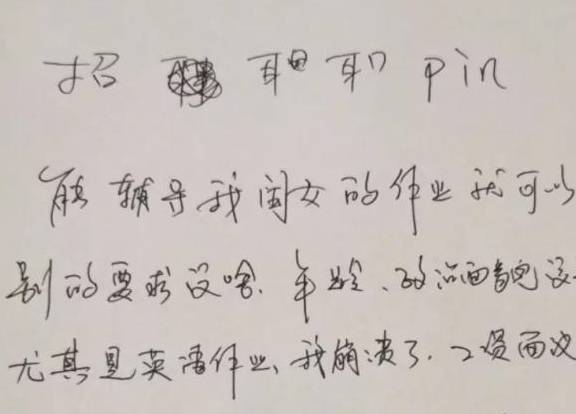 招 pin
能辅导我闺女的作业就可以
别的要求没啥、年龄、政治面貌没
尤其是英语作业、我崩溃了. 工资面议